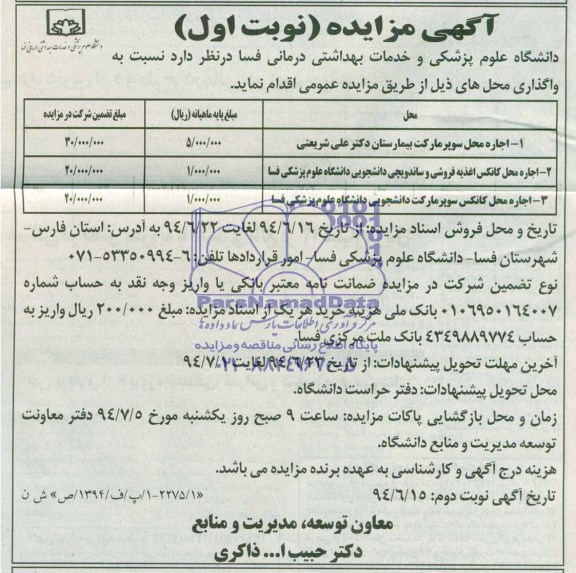 آگهی مزایده (نوبت اول)
دانشگاه علوم پزشکی و خدمات بهداشتی درمانی فسا
دانشگاه علوم پزشکی و خدمات بهداشتی درمانی فسا درنظر دارد نسبت به
واگذاری محل های ذیل از طریق مزایده عمومی اقدام نماید.
محل مبلغ پایه ماهیانه (ریال) مبلغ تضمین شرکت در مزایده
۱- اجاره محل سوپرمارکت بیمارستان دکتر علی شریعتی ۵/۰۰۰/۰۰۰ ۳۰/۰۰۰/۰۰۰
۲- اجاره محل کانکس اغذیه فروشی و ساندویچی دانشجویی دانشگاه علوم پزشکی فسا ۱/۰۰۰/۰۰۰ ۲۰/۰۰۰/۰۰۰
۳- اجاره محل کانکس سوپرمارکت دانشجویی دانشگاه علوم پزشکی فسا ۱/۰۰۰/۰۰۰ ۲۰/۰۰۰/۰۰۰
تاریخ و محل فروش اسناد مزایده: از تاریخ ۹۴/۶/۱۶ لغایت ۹۴/۶/۲۲ به آدرس: استان فارس-
شهرستان فسا- دانشگاه علوم پزشکی فسا- امور قراردادها تلفن: ۶-۰۷۱-۵۳۳۵۰۹۹۴
نوع تضمین شرکت در مزایده ضمانت نامه معتبر بانکی یا واریز وجه نقد به حساب شماره
۰۱۰۶۹۵۰۱۶۴۰۰۷ بانک ملی هزینه خرید هر یک از اسناد مزایده: مبلغ ۲۰۰/۰۰۰ ریال واریز به
حساب ۴۳۴۹۸۸۹۷۷۴ بانک ملت مرکزی فسا.
آخرین مهلت تحویل پیشنهادات: از تاریخ ۹۴/۶/۲۳ لغایت
محل تحویل پیشنهادات: دفتر حراست دانشگاه.
زمان و محل بازگشایی پاکات مزایده: ساعت ۹ صبح روز یکشنبه مورخ ۹۴/۷/۵ دفتر معاونت
توسعه مدیریت و منابع دانشگاه.
هزینه درج آگهی و کارشناسی به عهده برنده مزایده می باشد.
تاریخ آگهی نوبت دوم: ۹۴/۶/۱۵ «۱-۲۲۷۵/۱/پ/ف/۱۳۹۴/ص» ش ن
معاون توسعه، مدیریت و منابع
دکتر حبیب ا... ذاکری
ParsNamadData
مرکز فرآوری اطلاعات پارس نماد داده ها
پایگاه اطلاع رسانی مناقصه و مزایده